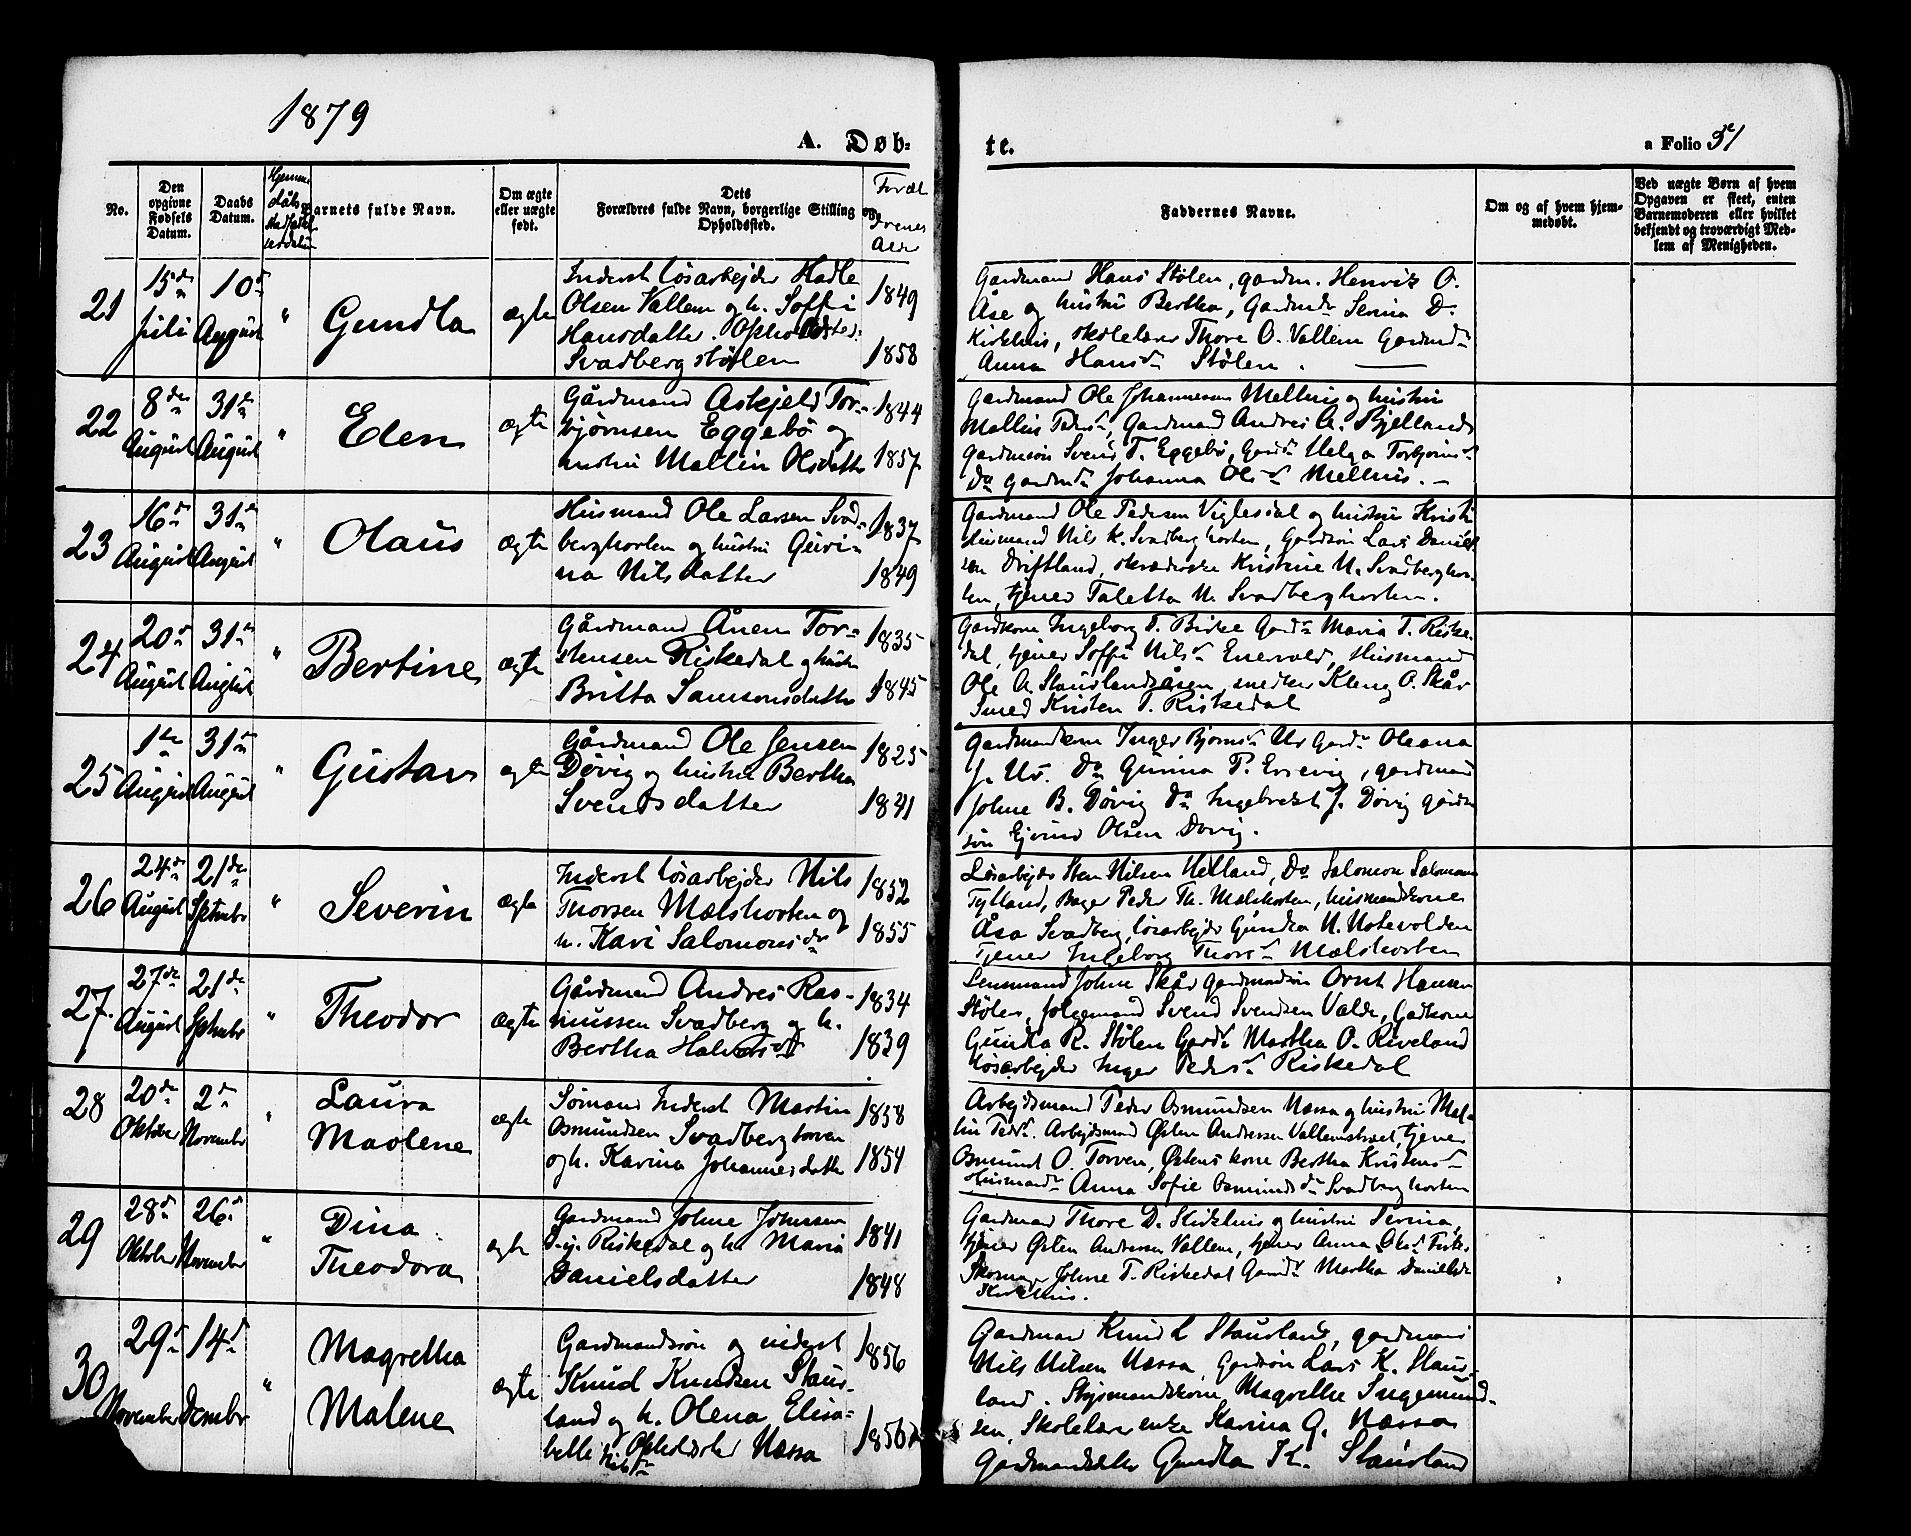 1879
A. Døb-
te.
a Folio 51
No.
Den
opgivne
Fødsels
Datum.
Daabs
Datum.
Barnets fulde Navn.
Om ægte
eller uægte
født.
Dets
Forældres fulde Navn, borgerlige Stilling og
Opholdssted.
Foræl
drenes
Alder
Faddernes Navne.
Om og af hvem hjem-
medøbt.
Ved uægte Børn af hvem
Opgaven er skeet, enten
Barnemoderen eller hvilket
bekjendt og troværdigt Med-
lem af Menigheden.
21
15de Juli
10de August
"
Gundla
ægte
Inderst løsarbejder Hadle
Olsen Vallem og h. Soffi
Hansdatter. Opholdsted:
Svadbergstølen
1849
1858
Gardmand Hans Stølen, gardm. Henrik O.
Åse og hustru Bertha, Gardmdr Serina D.
Kirkhus, skolelærer Thore O. Vallem Gardmdr
Anna Hansdr Stølen.
22
8de August
31te August
"
Eden
ægte
Gårdmand Askjeld Tor-
bjørnsen Eggebø og
hustru Mallin Olsdatter
1844
1857
Gardmand Ole Johannesen Mellius og hustru
Mallin Pedersdr, Gardmand Andres A. Bjelland
gardmsøn Svend T. Eggebø, Garddr Helga Torbjørnsdr
Do gardmdr Johanna Olsdr Mellius. -
23
16de August
31te August
"
Olaus
ægte
Husmand Ole Larsen Svad-
berghorten og hustru Guri-
na Nilsdatter
1837
1849
Gardmand Ole Pedersen Viglesdal og hustru Kristi
Husmand Nils K. Svadberghorten, Gardsøn Lars Daniel-
sen Driftland, skræderske Kristine N. Svadberghor-
ten, tjener Taletta N. Svadberghorten.
24
20de August
31te August
"
Bertine
ægte
Gårdmand Ånen Tor-
stensen Riskedal og hustr
Britta Samsonsdatter
1835
1845
Gardkone Ingeborg T. Birke Garddr Maria T. Riske-
dal, tjener Soffi Nilsdr Enervold, Husmand
Ole A. Staurlandsåsen, snedker Kleng O. Skår
Smed Kristen T. Riskedal
25
1te August
31te August
"
Gustav
ægte
Gårdmand Ole Jensen
Døvig og hustru Bertha
Svendsdatter
1825
1831
Gardmandkone Inger Bjørnsdr Ur Garddr Oleana
J. Ur. Do Gurina P. Ersevig, gardmand
Johne B. Døvig Do Ingebrekt J. Døvig gårdm
søn Ejvind Olsen Døvig.
26
24de August
21de Septmbr
"
Severin
ægte
Inderst løsarbejder Nils
Thorsen Mælshorten og
h. Kari Salomonsdr
1852
1855
Løsarbejder Sten Nilsen Helland, Do Salomon Salomonsen
Tytland, Bager Peder Th. Mælshorten, husmandkone
Åsa Svadberg, løsarbejder Gundla N.
Tjener Ingeborg Thorsdr Mælshorten
27.
27de August
21de Septmbr
"
Theodor
ægte
Gårdmand Andres Ras-
mussen Svadberg og h.
Bertha Halvorsdtr
1834
1839
Lensmand Johne Skår gardmandsøn Ornt Hansen
Stølen, folgemand Svend Svendsen Valde, Gadkone
Gundla R. Stølen Garddr Martha O. Riveland
løsarbejder Inger Pedersdr Riskedal
28
20de Oktober
2den November
"
Laura
Maolene
ægte
Sømand Inderst Martin
Osmundsen Svadbergtorven
og h. Karina Johannesdatter
1858
1854
Arbejdsmand Peder Osmundsen Næssa og hustru Mal-
lin Pedersdr. Arbejdsmand Østen Andersen Vallemstraet, tjener
Osmund O. Torven, Østens kone Bertha Kristensdr
Husmandr Anna Sofie Osmundsdr Svadberghorten
29
28de Oktober
26de November
"
Dina
Theodora
ægte
Gardmand Johne Johnsen
Riskedal og h. Maria
Danielsdatter
1841
1848
Gardmand Thore D. Kirkhus og hustru Serina,
tjener Østen Andersen Vallem, tjener Anna Olsdr
Skomager Johne T. Riskedal Garddr Martha Danielsdr
Kirkhus.
30
29de November
14de Dcmbr
"
Magretha
Malene
ægte
Gardmandsøn og inderst
Knud Knudsen Staur-
land og h. Olena Elisa-
belle Nilsdr Opholdsted Næssa
1856
1856
Gardmand Knud L Staurland, gardmand
Nils Nilsen Næssa, Gardsøn Lars K. Staur-
land. Magrethe Ingemund-
sen, Skolelærer enke Karina G. Næssa
Gardmandsdatter Gundla K. Staurland